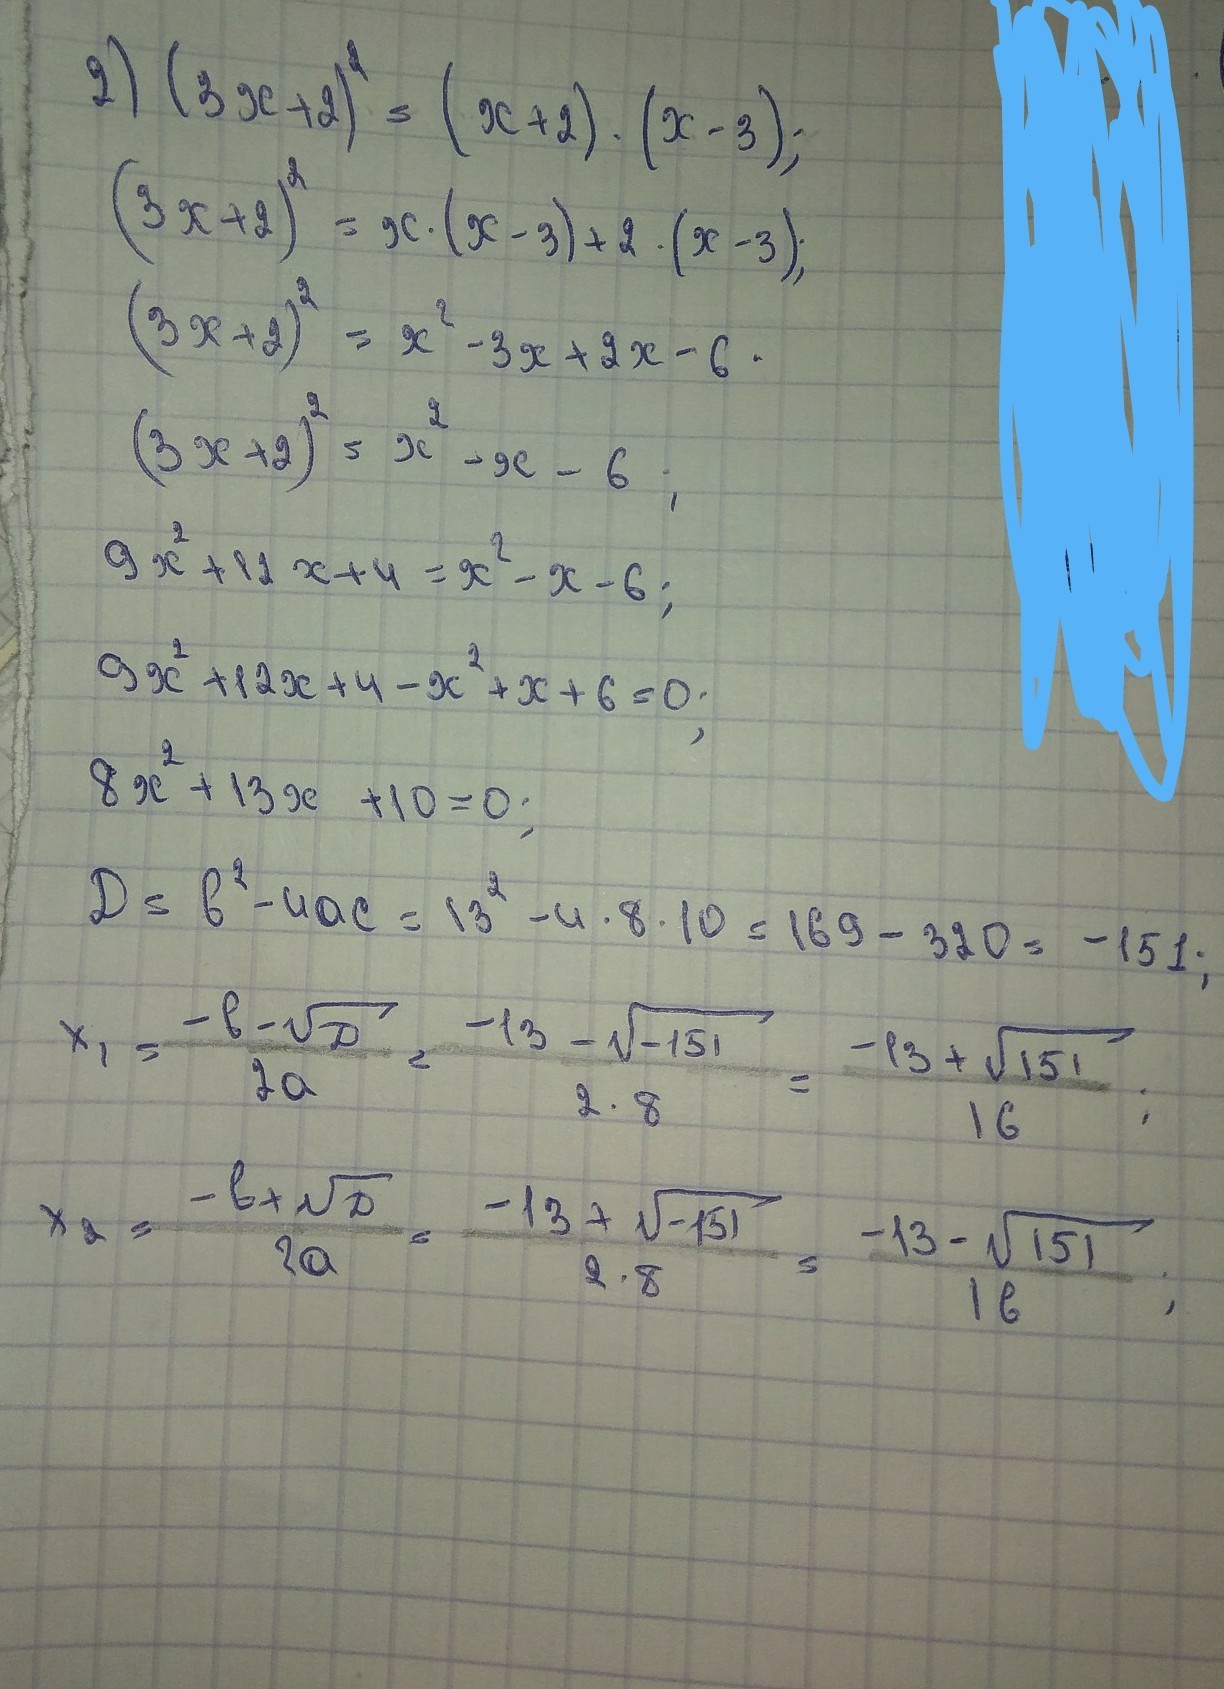 2) (3x+2)² = (x+2)·(x-3);
(3x+2)² = x·(x-3)+2·(x-3);
(3x+2)² = x²-3x+2x-6.
(3x+2)² = x²-x-6;
9x²+12x+4=x²-x-6;
9x²+12x+4-x²+x+6=0;
8x²+13x +10=0;
D = b²-4ac = 13²-4·8·10 = 169-320 = -151;
x₁ = (-b-√D)/(2a) = (-13-√-151)/(2·8) = (-13+√151)/16;
x₂ = (-b+√D)/(2a) = (-13+√-151)/(2·8) = (-13-√151)/16;